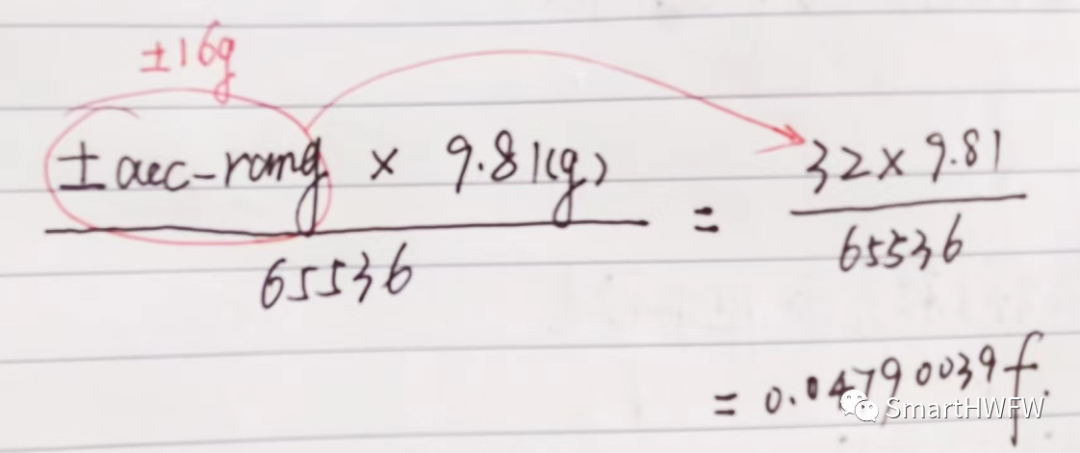 ±16g
±aec-rang × 9.81(g)
65536
= 32×9.81
65536
= 0.04790039f.
SmartHWFW